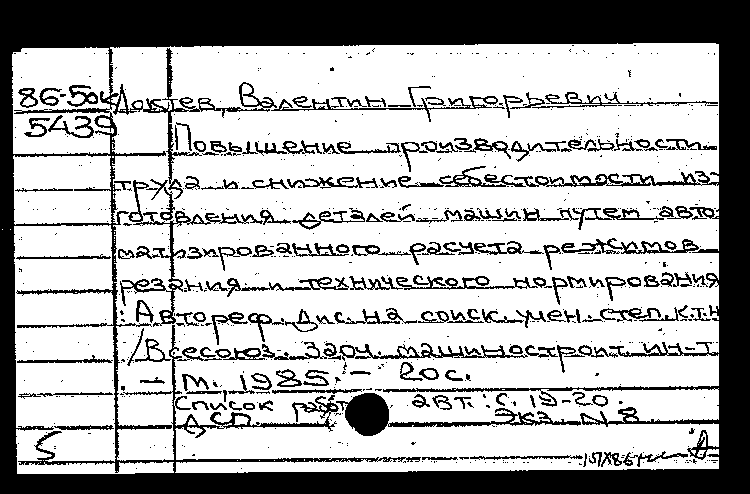 86-5ок Локтев, Валентин Григорьевич
5439
Повышение производительности
труда и снижение себестоимости из-
готовления деталей машин путем авто-
матизированного расчета режимов
резания и технического нормирования
: Автореф. Дис. на соиск. учен. степ. к.т.н
/Всесоюз. заоч. машиностроит. ин-т.
. – М., 1985. – 20 с.
Список работ авт.: с. 19-20.
ДСП. Экз. N 8
5